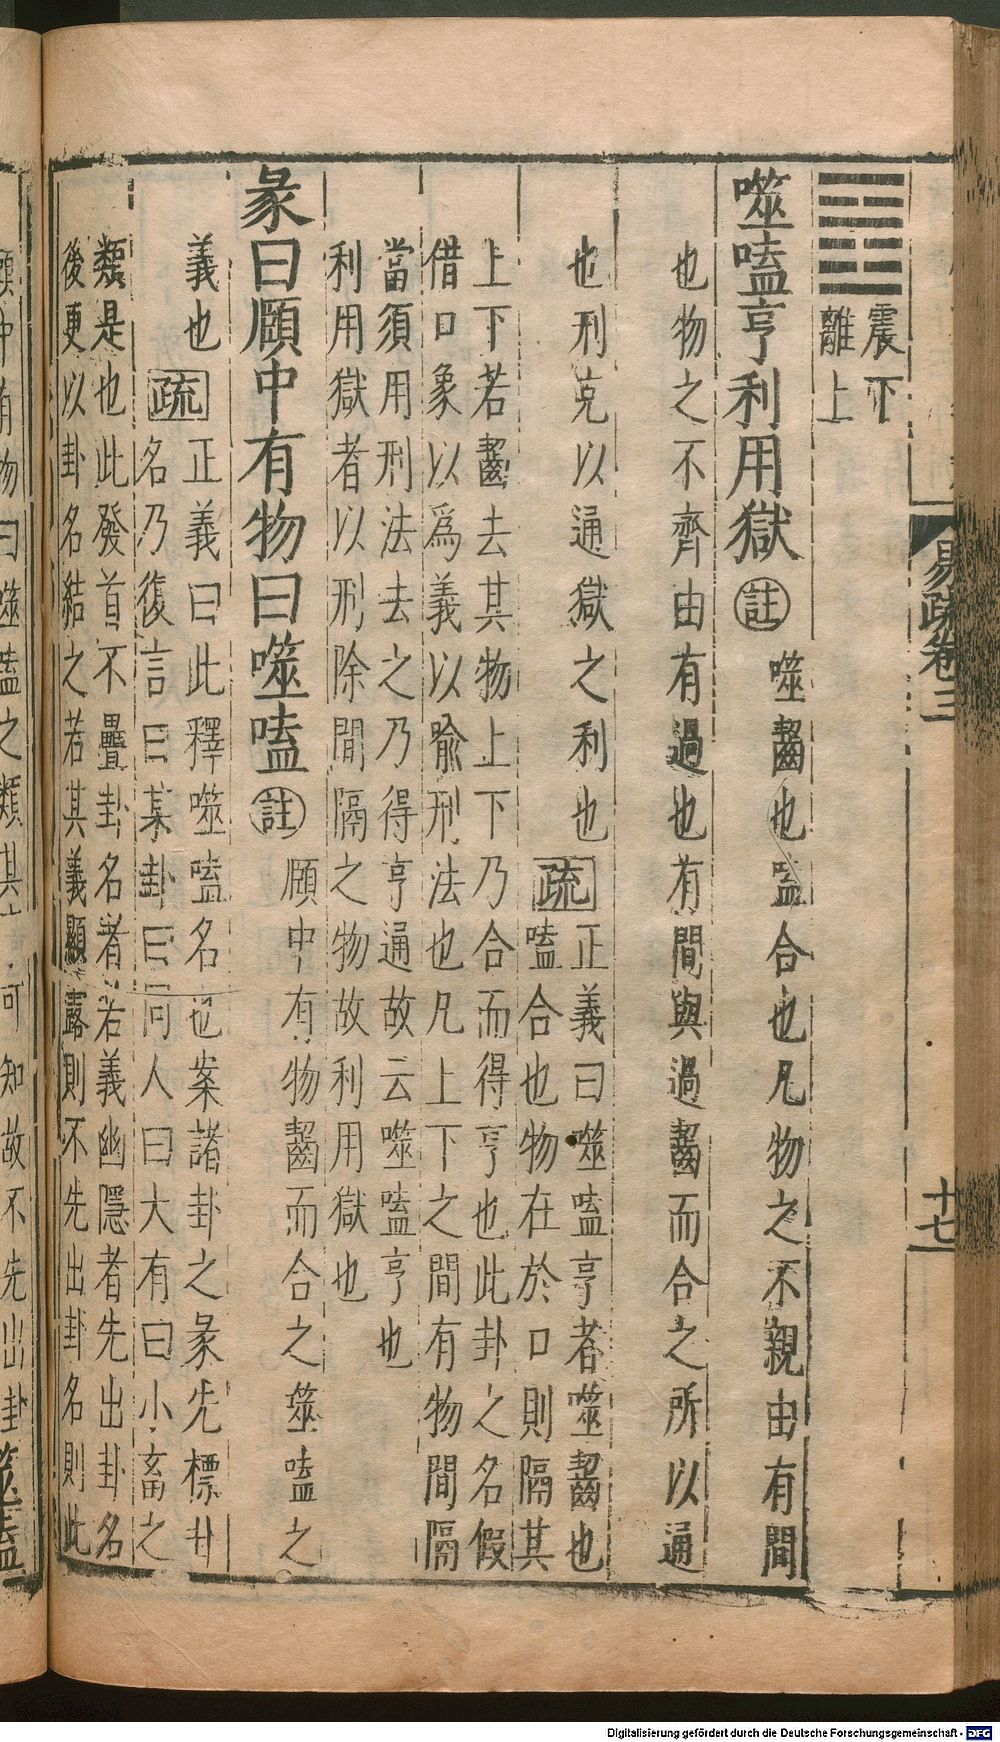 易疏卷三
十七
震下
離上
噬嗑亨利用獄註噬齧也嗑合也凡物之不親由有間
也物之不齊由有過也有間與過齧而合之所以通
也刑克以通獄之利也疏正義曰噬嗑亨者噬齧也
嗑合也物在於口則隔其
上下若齧去其物上下乃合而得亨也此卦之名假
借口象以為義以喻刑法也凡上下之間有物間隔
當須用刑法去之乃得亨通故云噬嗑亨也
利用獄者以刑除間隔之物故利用獄也
彖曰頤中有物曰噬嗑註頤中有物齧而合之噬嗑之
義也疏正義曰此釋噬嗑名也案諸卦之彖先標卦
名乃復言曰某卦曰同人曰大有曰小畜之
類是也此發首不疊卦名者若義幽隱者先出卦名
後更以卦名結之若其義顯露則不先出卦名則此
頤中有物曰噬嗑之類其可知故不先出卦
噬嗑
Digitalisierung gefördert durch die Deutsche Forschungsgemeinschaft - DFG